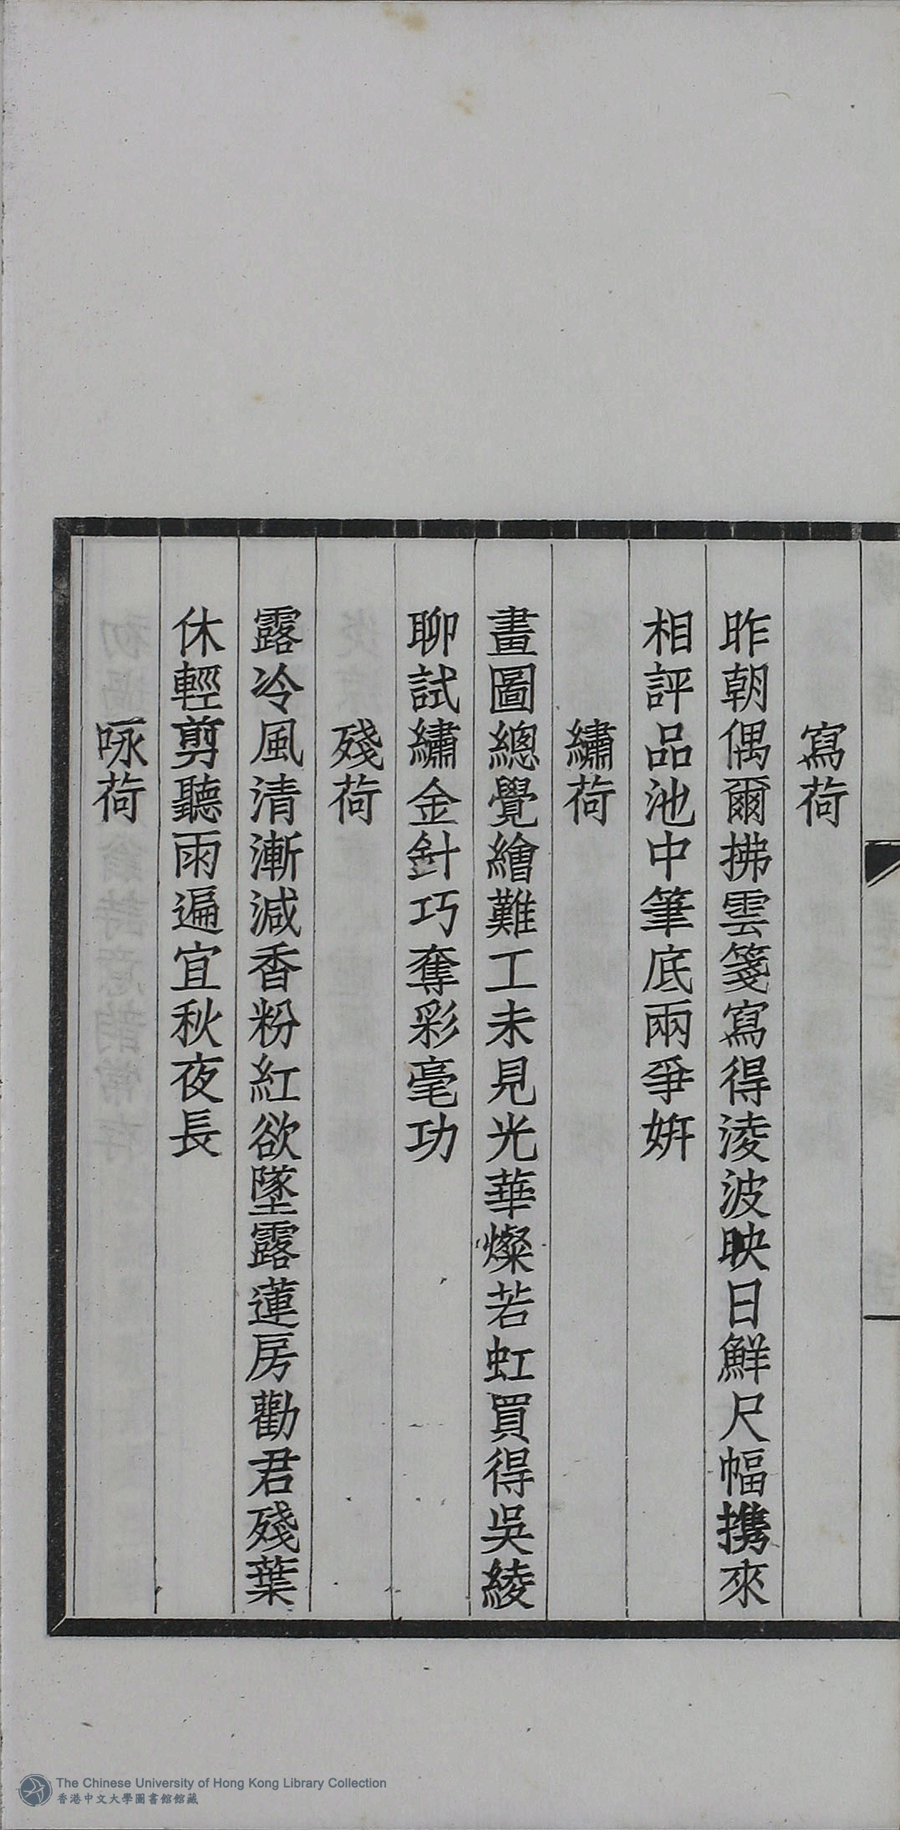 寫荷
昨朝偶爾拂雲箋寫得淩波映日鮮尺幅携來
相評品池中筆底兩爭妍
繡荷
畫圖總覺繪難工未見光華燦若虹買得吳綾
聊試繡金針巧奪彩毫功
殘荷
露冷風清漸減香粉紅欲墜露蓮房勸君殘葉
休輕剪聽雨遍宜秋夜長
咏荷
The Chinese University of Hong Kong Library Collection
香港中文大學圖書館館藏